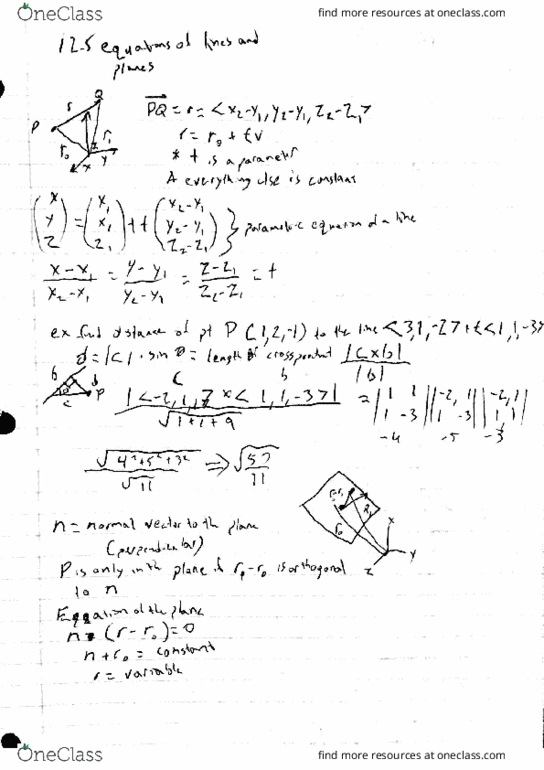 OneClass
find more resources at oneclass.com
12.5 equations of lines and
planes
Q
r
P
r₀
r₁
x y
PQ = r = <x₂-y₁, y₂-y₁, z₂-z₁>
r = r₀ + tv
* t is a parameter
A everything else is constant
(x y z) = (x₁ x₁ z₁) + t (x₂-y₁ y₂-y₁ z₂-z₁) } parametric equation of a line
x-x₁/x₂-x₁ = y-y₁/y₂-y₁ = z-z₁/z₂-z₁ = t
ex find distance of pt P (1,2,-1) to the line <3,1,-2> + t<1,1,-3>
d = |c| · sin θ = length of crossproduct |c x b| / |b|
b d P
c
c b
|<-2,1,1> x <1,1,-3>| / √1+1+9 = |1 1 1 -3| |-2 1 1 -3| |-2 1 1 1|
-4 -5 -3
√4²+5²+3² / √11 ⇒ √52/11
n = normal vector to the plane
(perpendicular)
P is only in the plane if r₁-r₀ is orthogonal
to n
r₀
x
y
z
Equation of the plane
n • (r - r₀) = 0
n + r₀ = constant
r = variable
OneClass
find more resources at oneclass.com